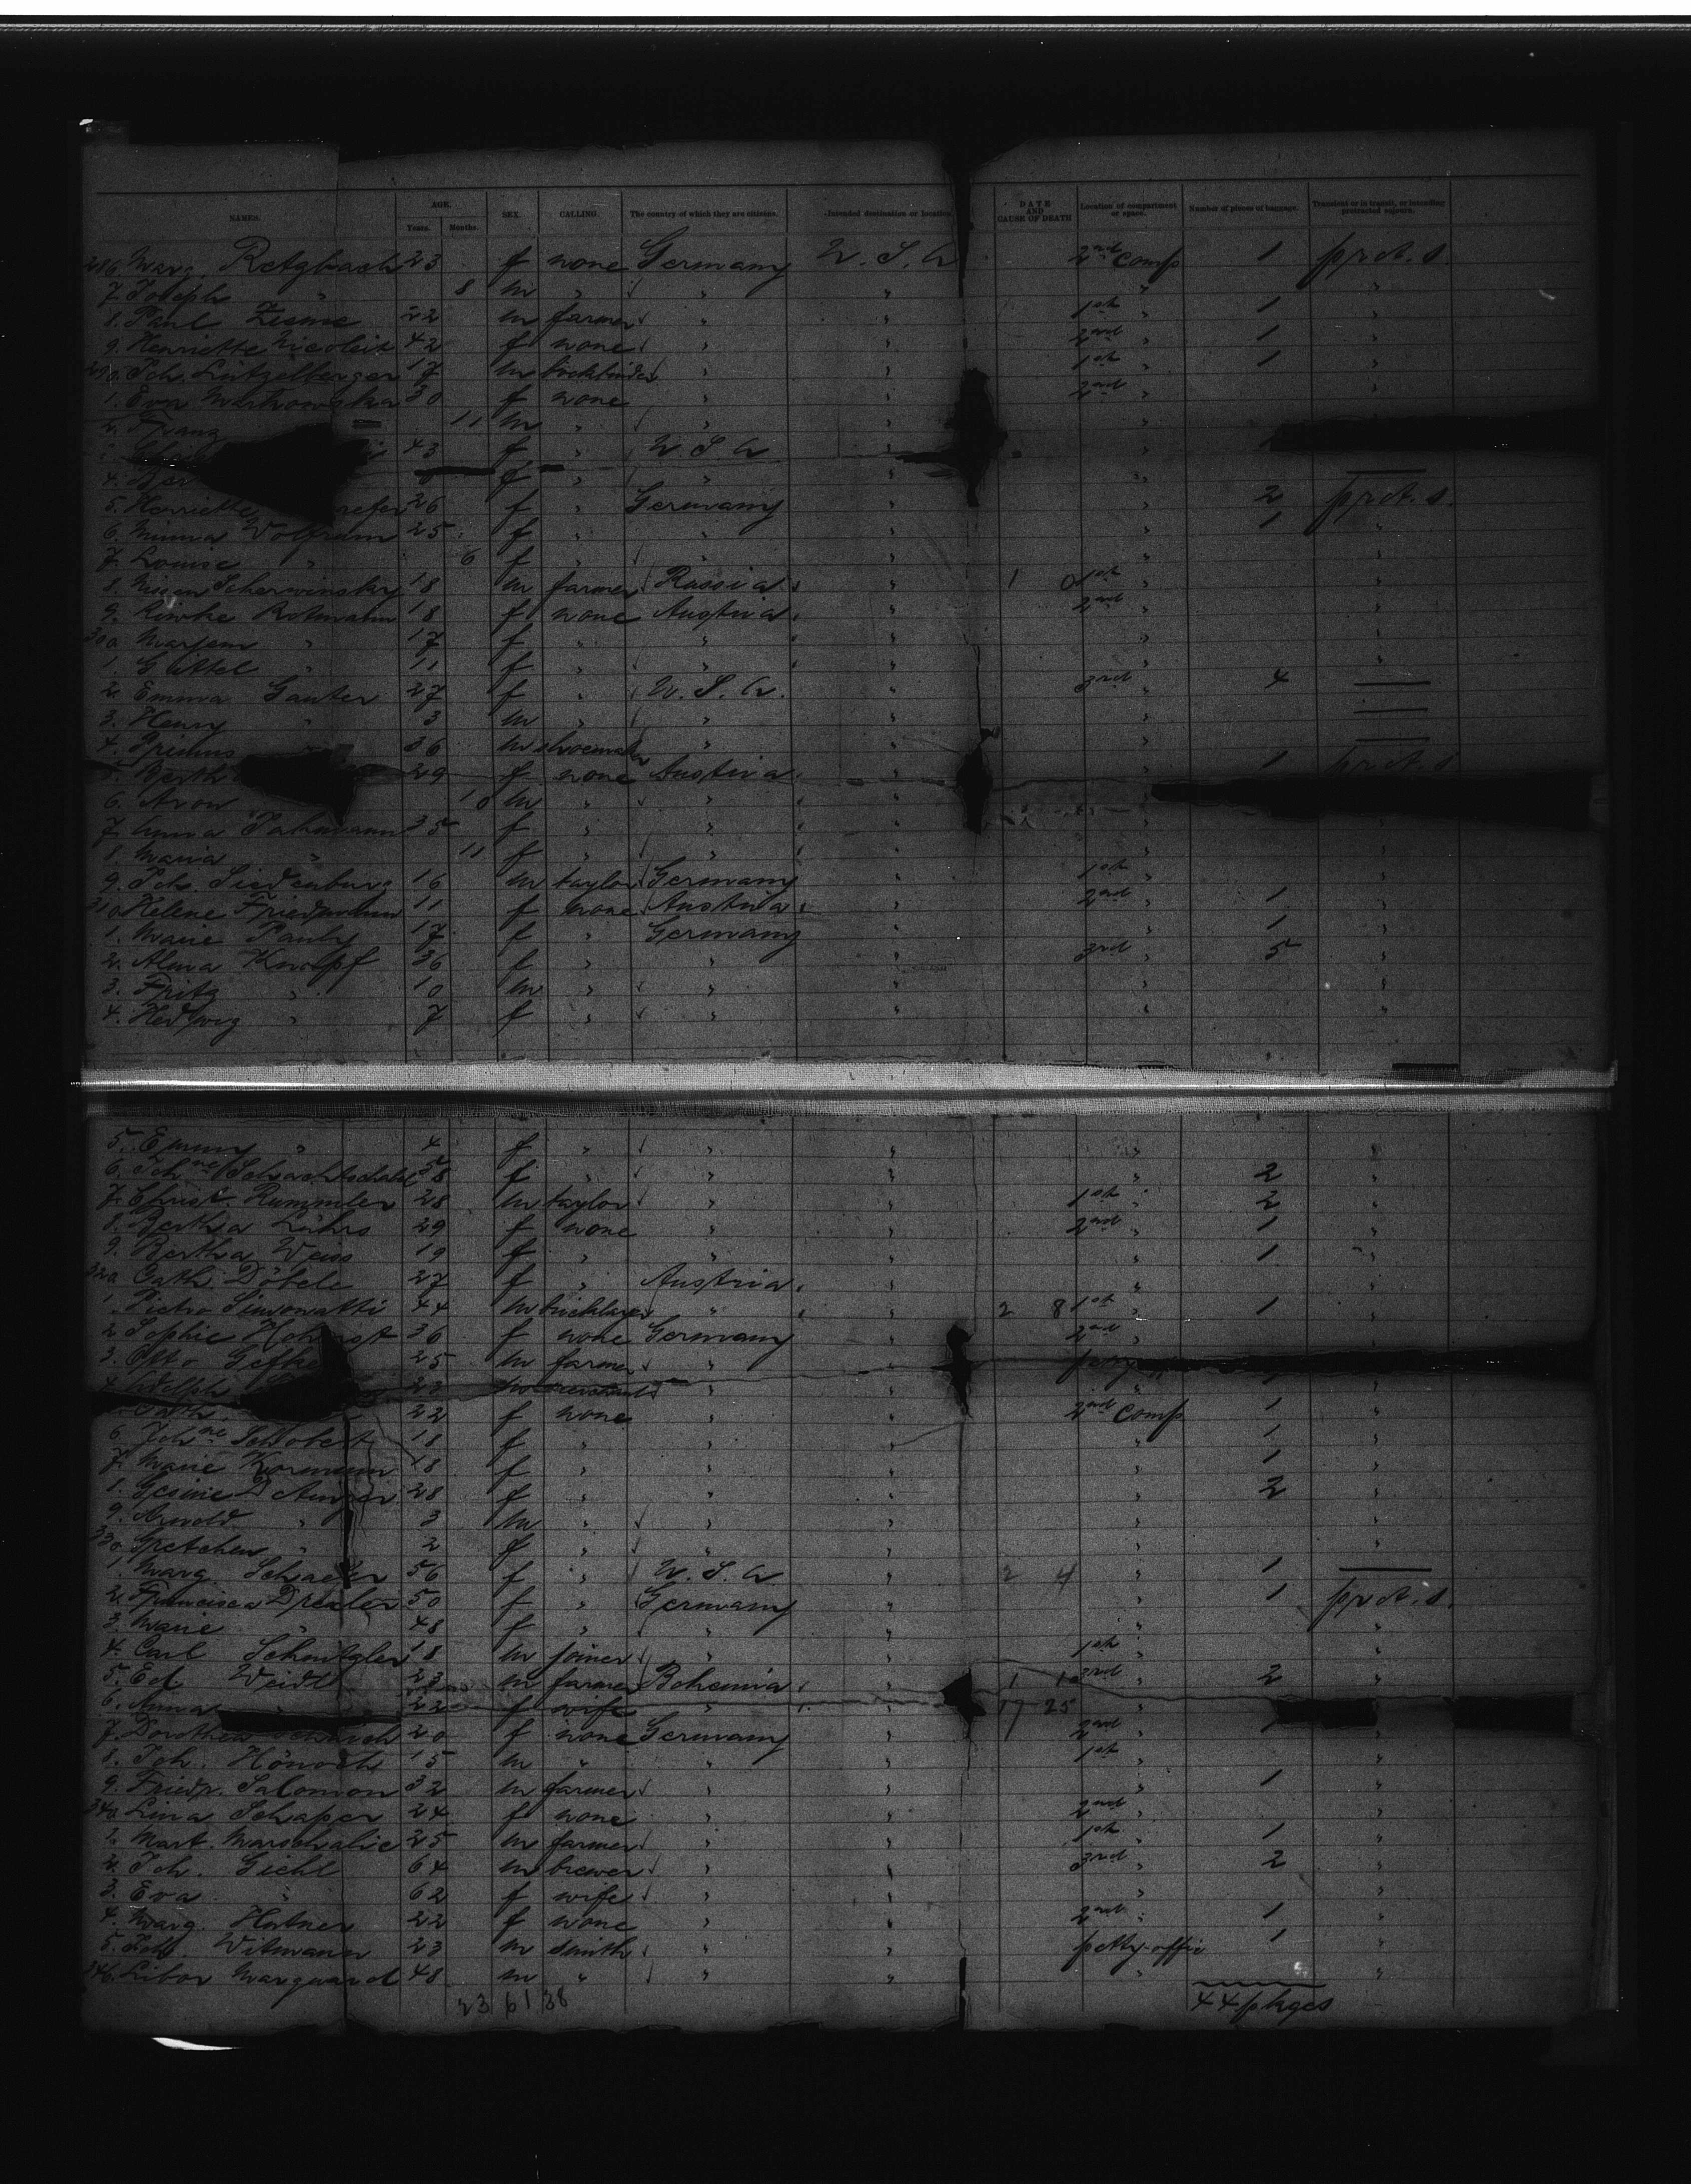 NAMES. AGE. Years. Months. SEX. CALLING. The country of which they are citizens. Intended destination or location. DATE AND CAUSE OF DEATH Location of compartment or space. Number of pieces of baggage. Transient or in transit, or intending protracted sojourn.
286. Marg. Retzbach 23 f none Germany U. S. A 2nd Comp 1 prot. s.
7. Joseph " 8 m " " " " "
8. Paul 22 m farmer " " 1st " 1 "
9. Henriette Nicoleit 42 f none " " 2nd " 1 "
290. Joh. Lützelberger 17 m bookbinder " " 1st " 1 "
1. Eva Markowska 30 f none " " 2nd " "
2. Franz 11 m " " " "
43 f " U. S. A " "
4. f " " " "
5. Henriette 26 f " Germany " " 2 prot. s.
6. Minna Wolfram 25 f " " " " 1 "
7. Louise " 6 f " " " " "
8. Scherwinsky 18 m farmer Russia " 1st " "
9. Riwke Rotmann 18 f none Austria " 2nd " "
300 Marjem " 17 f " " " " "
1. Gittel " 11 f " " " " "
2. Emma Gauter 27 f " U. S. A. " 3rd " 4
3. Henry " 3 m " " " "
4. 36 m shoemaker " " "
5. Berth 29 f none Austria " " 1 prot. s
6. Aron 10 m " " "
7. Anna 35 f " " " " "
8. Maria " 11 f " " " " "
9. Joh. Siedenburg 16 m taylor Germany " 1st " "
310 Helene Friedmann 11 f none Austria " 2nd " 1 "
1. Marie Pauly 17 f " Germany " " 1 "
2. Alma Knolpf 36 f " " " 3rd " 5 "
3. Fritz " 10 m " " " " "
4. Hedwig " 7 f " " " " "
5. Emmy " 4 f " " " " "
6. Johne 58 f " " " " 2 "
7. Christ. Rummler 28 m taylor " " 1st " 2 "
8. Bertha Lührs 29 f none " " 2nd " 1 "
9. Bertha Weiss 19 f " " " " 1 "
320 Cath. Döbele 27 f " Austria " " "
1. Pietro Simonatti 44 m bricklayer " " 2 8 1st " 1 "
2 Sophie 36 f none Germany " 2nd " "
3. Otto Gefke 25 m farmer " "
4. Adolph 23 m " " "
Cath. 22 f none " " 2nd Comp 1 "
6. Johne Schobert 18 f " " " " 1 "
7. Marie 18 f " " " " 1 "
8. Gesine 28 f " " " " 2 "
9. Arnold " 3 m " " " " "
330 Gretchen " 2 f " " " " "
1. Marg. Schaefer 56 f " U. S. A " 2 4 " 1
2. Francisca Drexler 50 f " Germany " " 1 prot. s.
3. Marie " 48 f " " " " "
4. Carl Schnitzler 18 m joiner " " 1st " "
5. Ed. Weidl 23 m farmer Bohemia " 3rd " 2 "
6. Anna 22 f wife " " 17 25 "
7. Dorothea 20 f none Germany " 2nd " 1 "
8. Joh. Hönoch 15 m " " " 1st " "
9. Friedr. Salomon 32 m farmer " " " 1 "
340 Lina Schaper 24 f none " " 2nd " "
1. Mart. Marschalic 25 m farmer " " 1st " 1 "
2. Joh. Giehl 64 m brewer " " 3rd " 2 "
3. Eva " 62 f wife " " " "
4. Marg. Hutner 22 f none " " 2nd " 1 "
5. Joh. Witmann 23 m smith " " petty-offic 1 "
346. Libor Marquard 48 m " " " " "
23 61 38 44 pkges